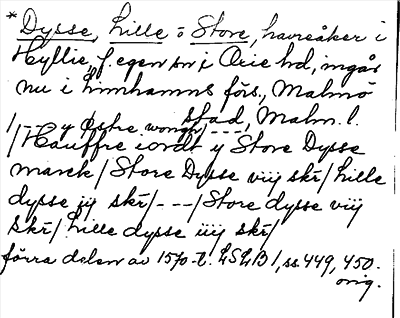 * Dysse, Lille o Store, havreåker i
Hyllie, f. egen sn i Oxie hd, ingår
nu i Limhamns förs., Malmö
stad, Malm. l.
/--- y østre wongh/---,
/Hauffre iordt y Store Dysse
marck/ Store Dysse viij skr/ Lille
dysse jij skr/---/Store dysse viij
skr/ Lille dysse iiij skr/
förra delen av 1570-t. LSLB 1, ss. 449, 450.
orig.